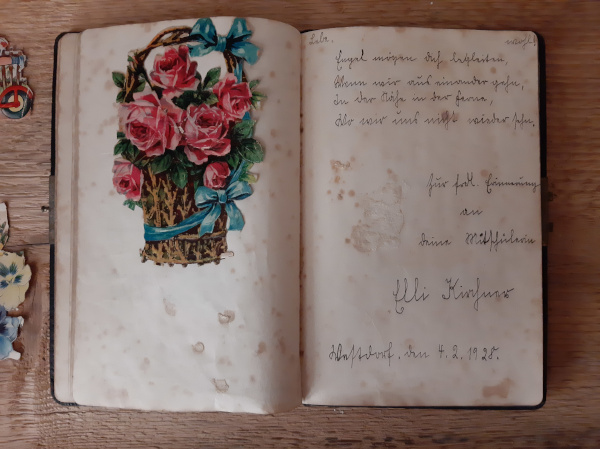 Lebe wohl!
Engel mögen dich begleiten,
Wenn wir auseinander gehn,
In der Nähe in der Ferne,
Wo wir uns nicht wieder sehn.
Zur frdl. Erinnerung
an
deine Mitschülerin
Elli Kirchner
Westdorf, den 4.2.1928.